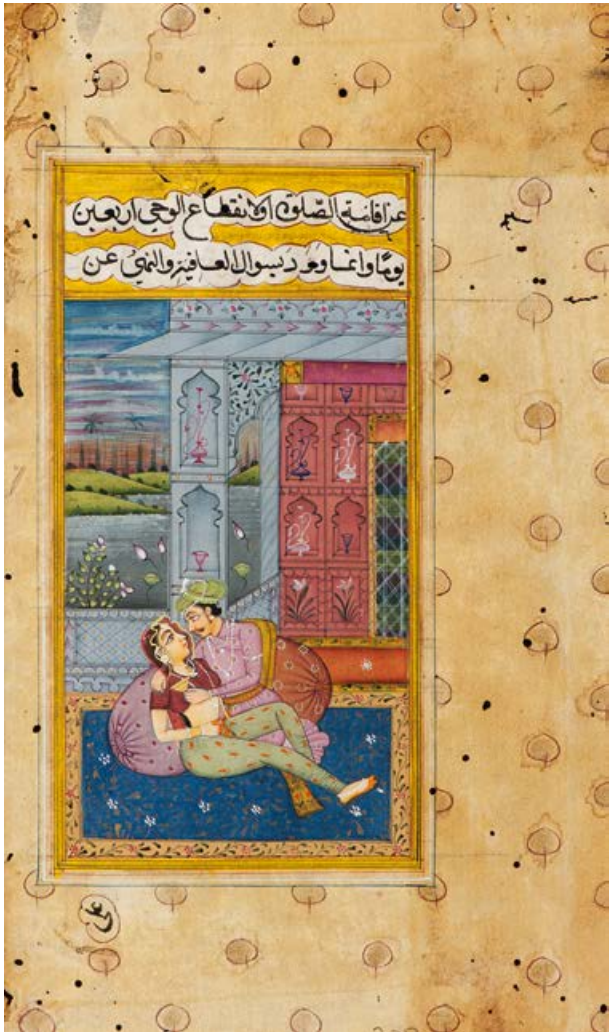 عن اقامة الصلوة او لانقطاع الوحي اربعين
يومًا وانما بسوال العافية والنهي عن